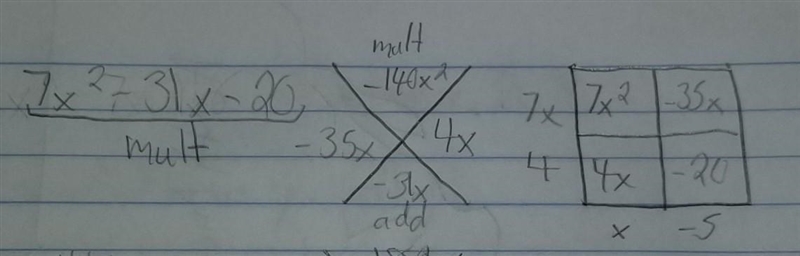 7x² - 31x - 20
mult
mult
-140x²
-35x 4x
-31x
add
7x 7x² -35x
4 4x -20
x -5